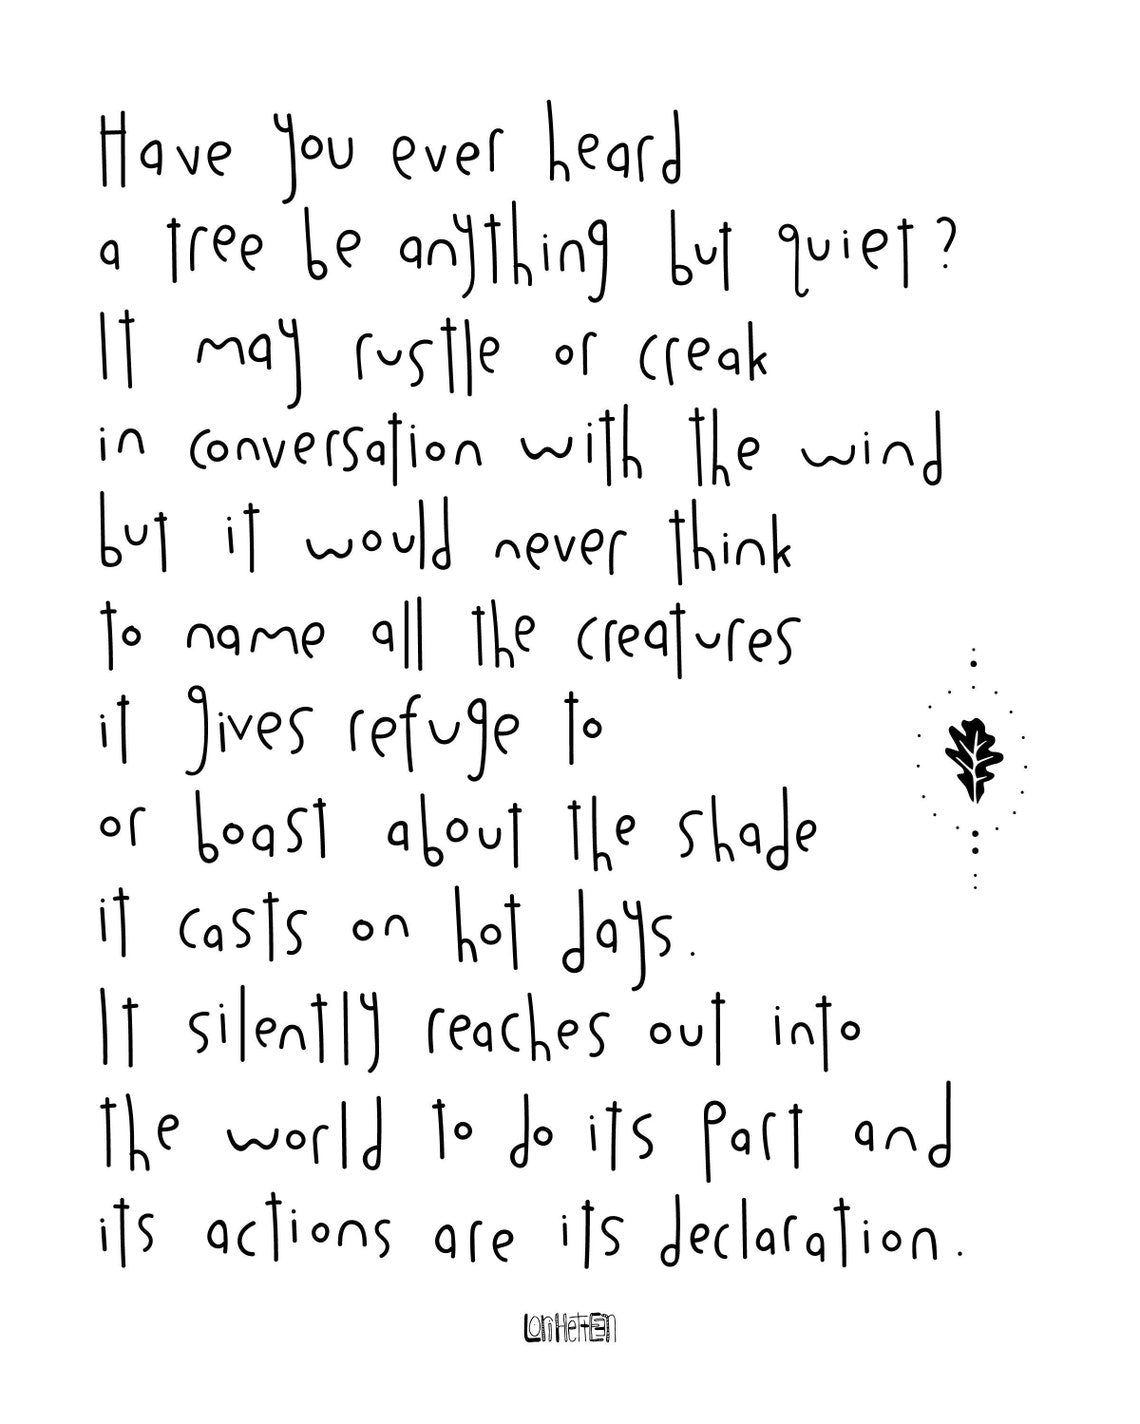 Have you ever heard
a tree be anything but quiet?
It may rustle or creak
in conversation with the wind
but it would never think
to name all the creatures
it gives refuge to
or boast about the shade
it casts on hot days.
It silently reaches out into
the world to do its part and
its actions are its declaration.
Lori Hetteen